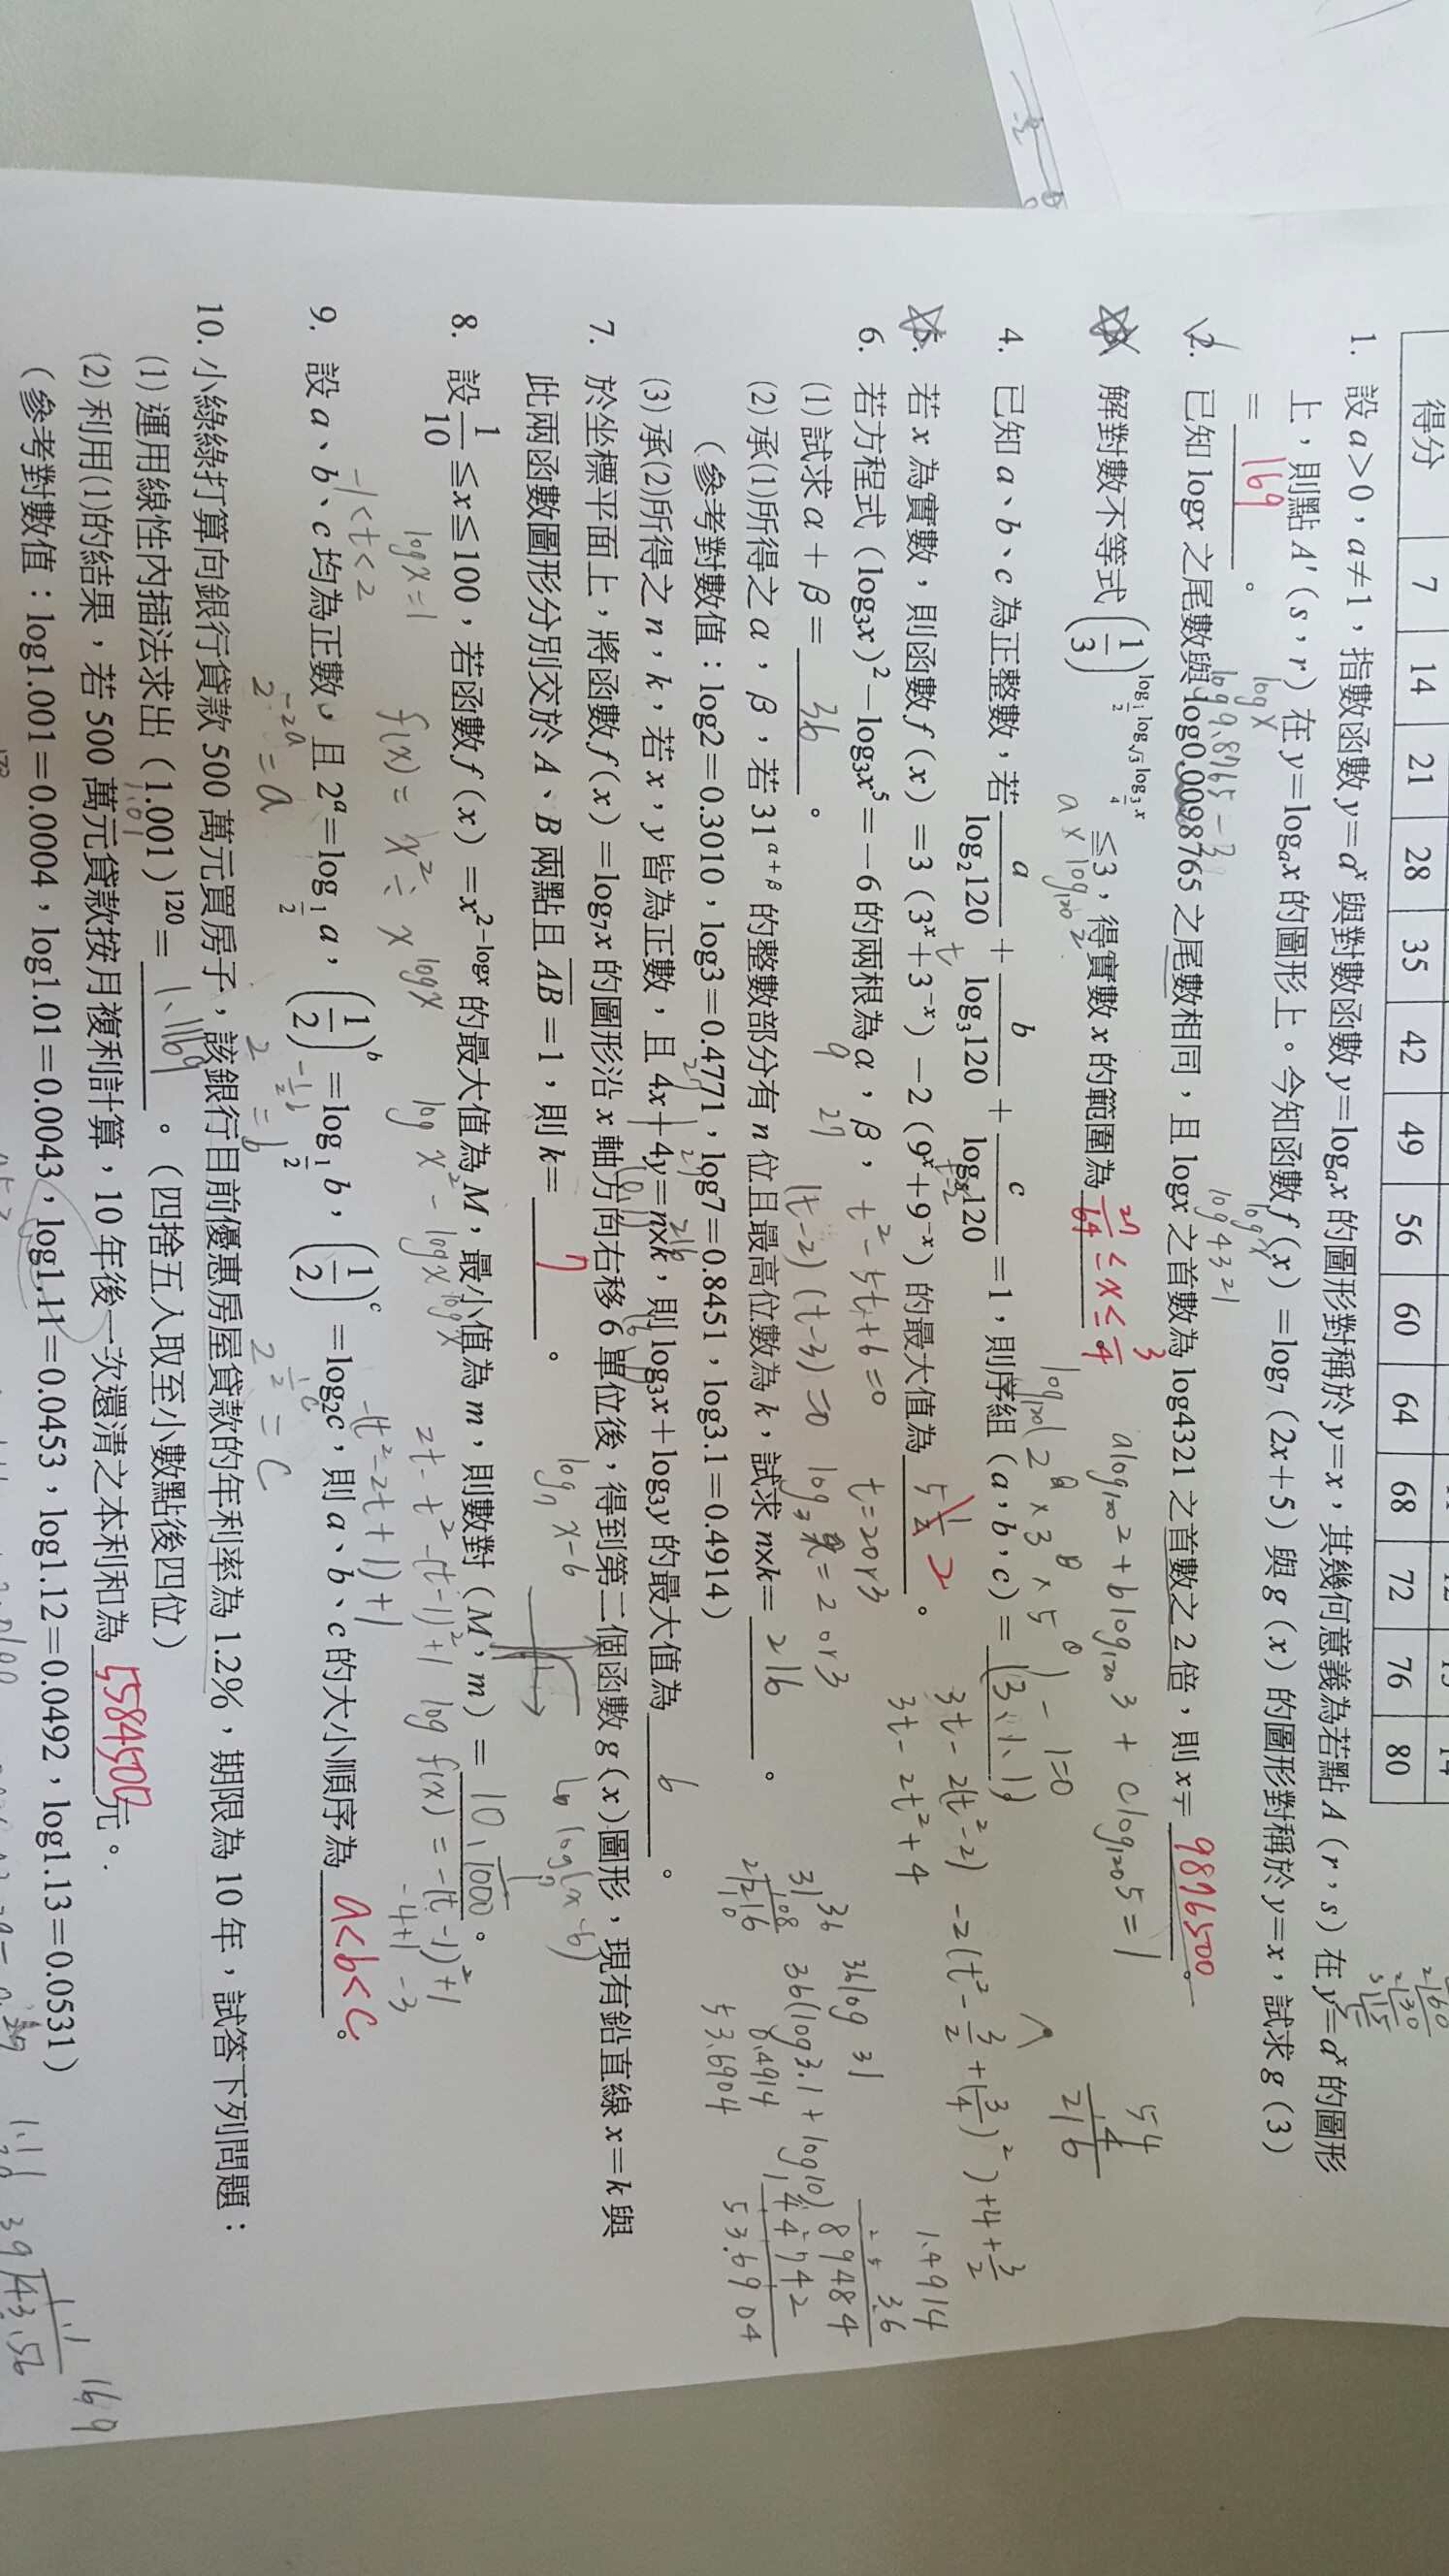 得分 7 14 21 28 35 42 49 56 60 64 68 72 76 80
1. 設 a>0，a≠1，指數函數 y=aˣ 與對數函數 y=logₐx 的圖形對稱於 y=x，其幾何意義為若點 A（r，s）在 y=aˣ 的圖形
上，則點 A'（s，r）在 y=logₐx 的圖形上。今知函數 f（x）=log₇（2x+5）與 g（x）的圖形對稱於 y=x，試求 g（3）
= 169 。
log x
log 9.8765 - 3
log x
log 4321
2. 已知 logx 之尾數與 log0.0098765 之尾數相同，且 logx 之首數為 log4321 之首數之 2 倍，則 x= 9876500 。
解對數不等式 (1/3)^(log_{1/2} log_{√3} log_{3/4} x) ≤3，得實數 x 的範圍為 27/64 ≤ x ≤ 3/4
a × log₁₂₀2
a log₁₂₀2 + b log₁₂₀3 + c log₁₂₀5 = 1
4. 已知 a、b、c 為正整數，若 a/log₂120 + b/log₃120 + c/log₅120 =1，則序組（a，b，c）= (3、1、1)
5. 若 x 為實數，則函數 f（x）=3（3ˣ+3⁻ˣ）-2（9ˣ+9⁻ˣ）的最大值為 2 。
3t - 2(t²-2)
3t - 2t² + 4
6. 若方程式（log₃x）²-log₃x⁵=-6 的兩根為 α，β，
9 27
t² - 5t + 6 = 0
t = 2 or 3
(t-2)(t-3) = 0
(1) 試求 α + β = 36 。
(2) 承(1)所得之 α，β，若 31^(α+β) 的整數部分有 n 位且最高位數為 k，試求 n×k= 216 。
36 log 31
36(log3.1 + log10)
0.4914
53.6904
1.4914
36
89484
44742
53.6904
（參考對數值：log2=0.3010，log3=0.4771，log7=0.8451，log3.1=0.4914）
(3) 承(2)所得之 n，k，若 x，y 皆為正數，且 4x+4y=n×k，則 log₃x+log₃y 的最大值為 6 。
7. 於坐標平面上，將函數 f（x）=log₇x 的圖形沿 x 軸方向右移 6 單位後，得到第二個函數 g（x）圖形，現有鉛直線 x=k 與
此兩函數圖形分別交於 A、B 兩點且 AB=1，則 k= 7 。
log₇ x-6
8. 設 1/10 ≤x≤100，若函數 f（x）=x^(2-logx) 的最大值為 M，最小值為 m，則數對（M，m）= 10、1/1000 。
-1<t<2
log x = 1
f(x) = x² ÷ x^(log x)
log x² - log x^(log x)
2t - t²
-(t-1)²+1
log f(x) = -(t-1)²+1
-(t²-2t+1)+1
-4+1
-3
9. 設 a、b、c 均為正數，且 2ᵃ=log_{1/2} a，(1/2)ᵇ=log_{1/2} b，(1/2)ᶜ=log₂c，則 a、b、c 的大小順序為 a<b<c 。
10. 小綠綠打算向銀行貸款 500 萬元買房子，該銀行目前優惠房屋貸款的年利率為 1.2%，期限為 10 年，試答下列問題：
(1) 運用線性內插法求出（1.001）¹²⁰= 1.1169 。（四捨五入取至小數點後四位）
1.01
(2) 利用(1)的結果，若 500 萬元貸款按月複利計算，10 年後一次還清之本利和為 5584500 元。
（參考對數值：log1.001=0.0004，log1.01=0.0043，log1.11=0.0453，log1.12=0.0492，log1.13=0.0531）